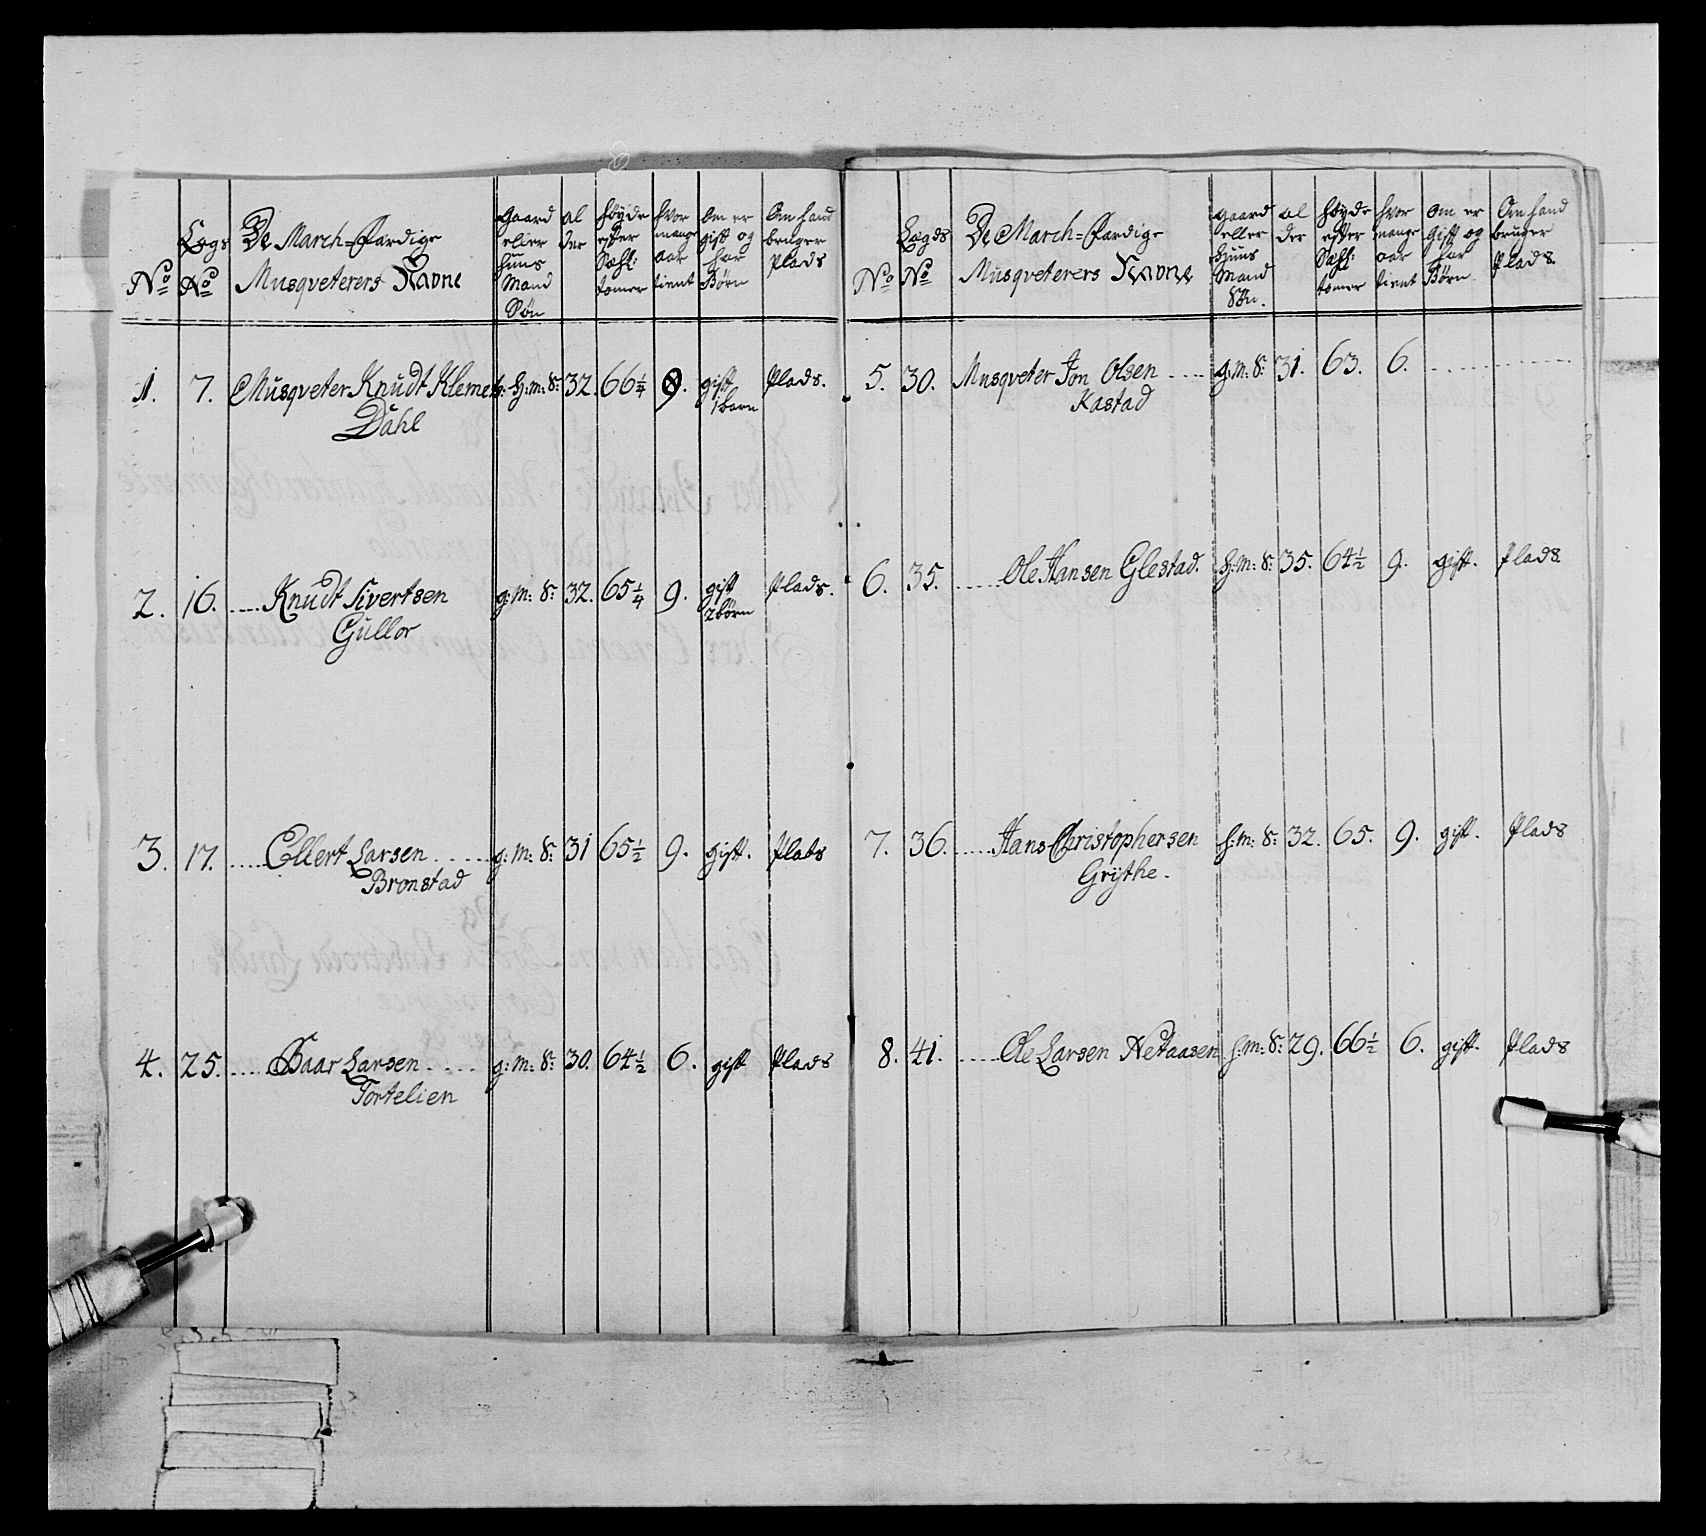 No Lægs No De March=Færdige Musqveterers Navne Gaard eller Huus Mand Søn al der Høyde efter Sæchs: tomer hvor mange aar tient om er gift og har Börn Om hand bruger Plads
1. 7. Musqveter Knudt Klemets: H:m:S: 32. 66¼ 9. gift 1 barn Plads.
Dahl
2. 16. ..... Knudt Sivertsen g:m:S: 32. 65¼ 9. gift 2 börn Plads.
Gullor
3. 17. ..... Ellert Larsen ..... g:m:S: 31 65½ 9. gift. Plads
Bronstad
4. 25. ..... Baar Larsen .... g:m:S: 30. 64½ 6. gift Plads
Tortelien
No Lægds No De March=Færdige Musqveterers Navne gaard eller Huus Mand Sön. al der Høyde efter Sæchs: tomer hvor mange aar tient om er Gift og har Börn Om hand bruger Plads
5. 30. Musqveter Jon Olsen .... g:m:S: 31. 63. 6. ......
Kastad
6. 35. ..... Ole Hansen Glestad. H:m:S: 35. 64½ 9. gift. Plads
7. 36. ..... Hans Christophersen H:m:S: 32. 65. 9. gift. Plads
Grythe.
8. 41. ..... Ole Larsen Netaasen H:m:S: 29. 66½ 6. gift. Plads